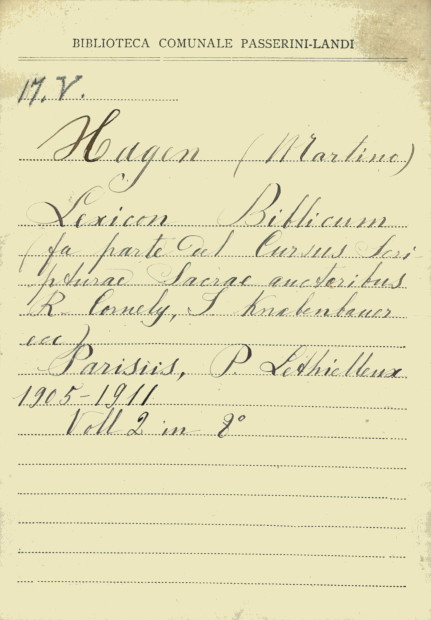 BIBLIOTECA COMUNALE PASSERINI-LANDI
17. V.
Hagen (Martino)
Lexicon Biblicum
(fa parte del Cursus Scri-
pturae Sacrae auctoribus
R. Cornely, I Knabenbauer
ecc)
Parisiis, P Lethielleux
1905-1911
Voll 2 in 8°